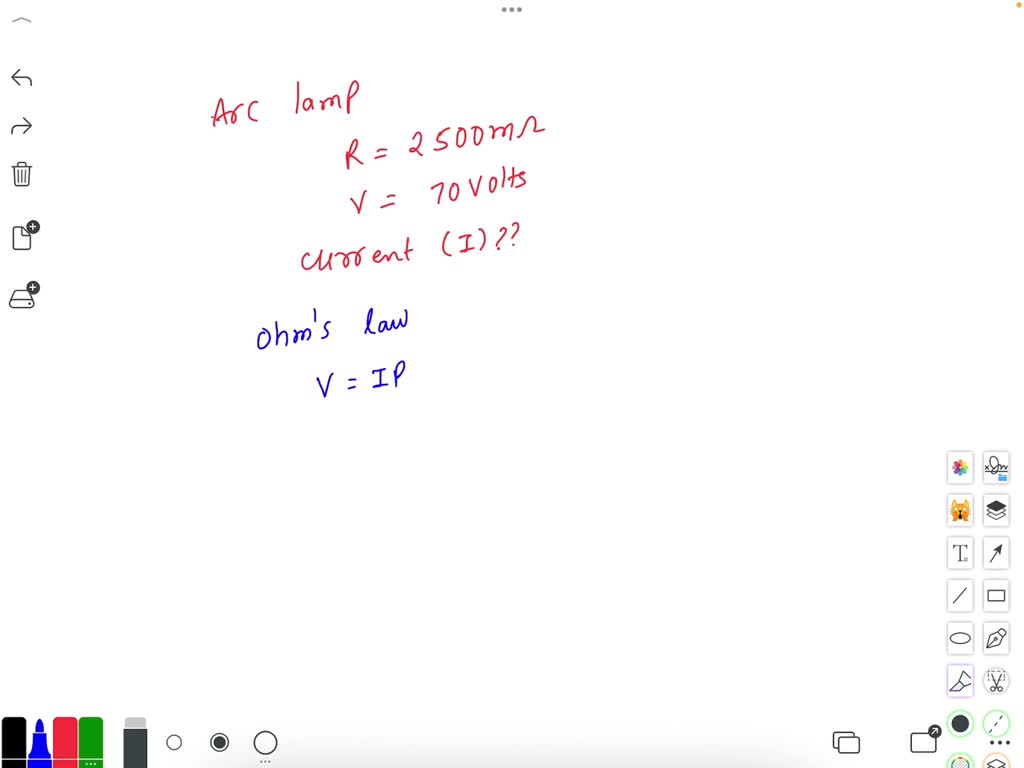 Arc lamp
R = 2500mΩ
V = 70 Volts
current (I)??
Ohm's law
V = IP